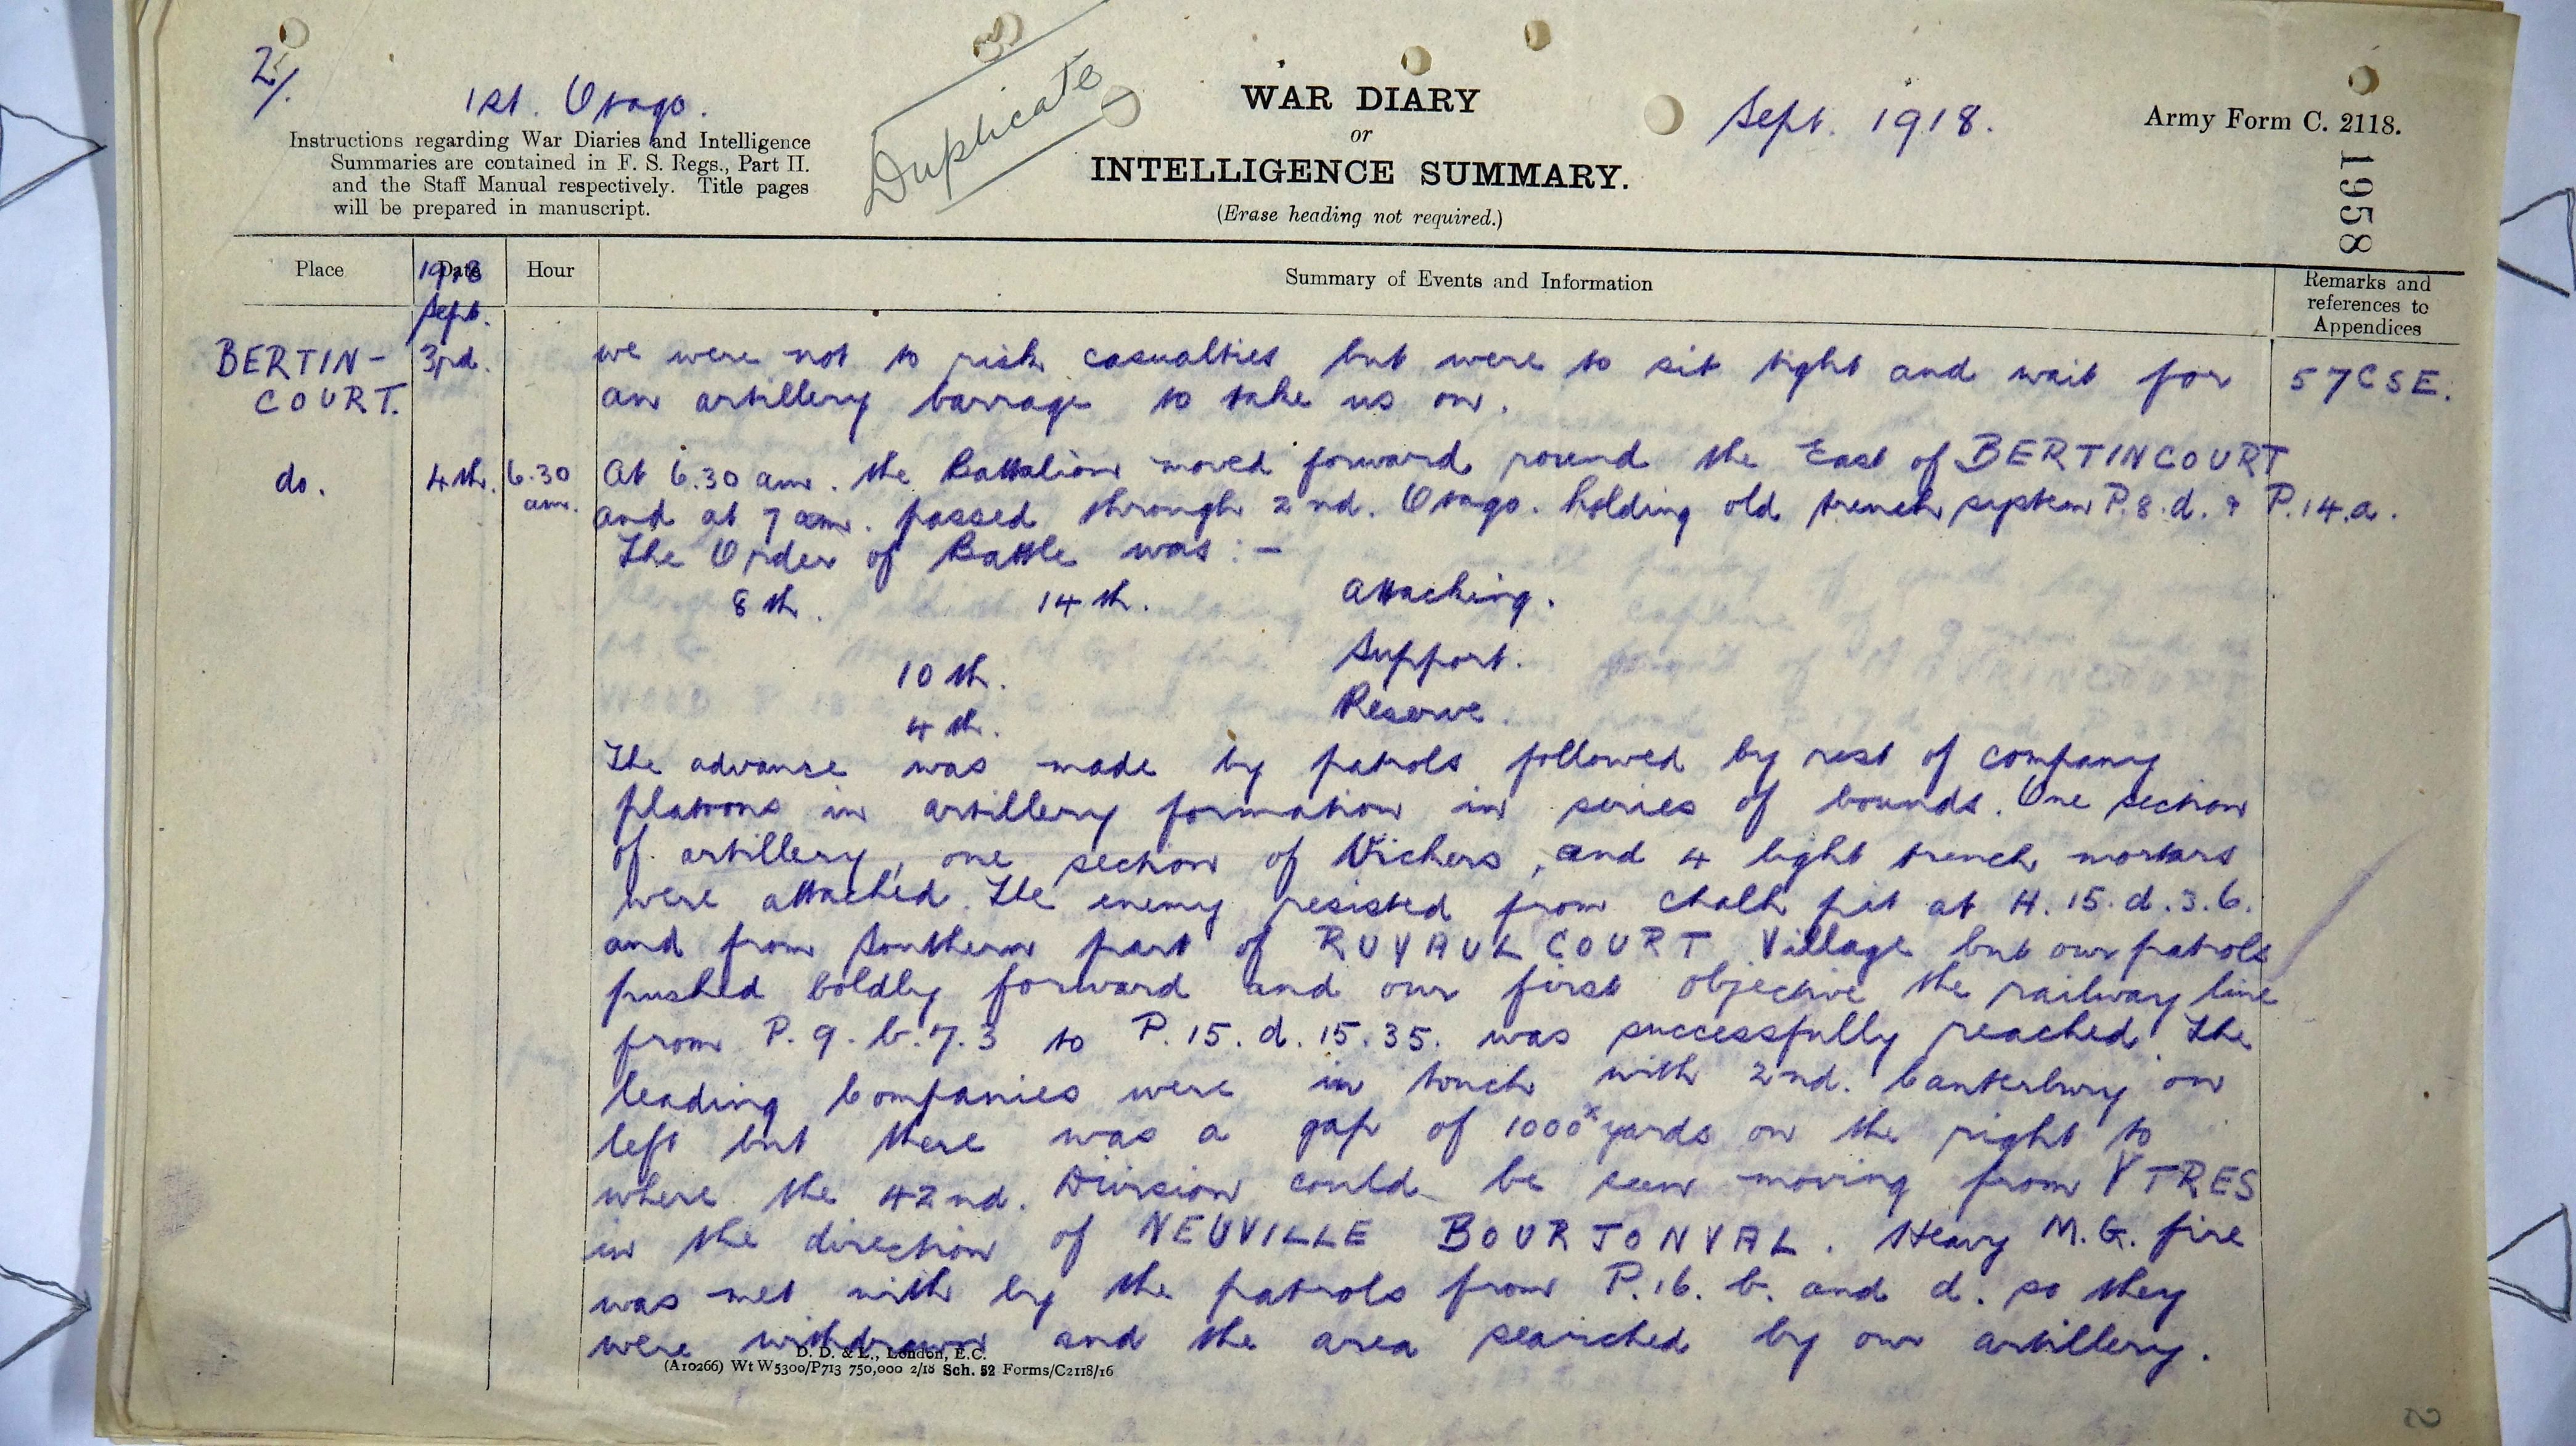 2/.
1st. Otago.
Duplicate
WAR DIARY
or
INTELLIGENCE SUMMARY.
(Erase heading not required.)
Sept. 1918.
Army Form C. 2118.
1958
Instructions regarding War Diaries and Intelligence
Summaries are contained in F. S. Regs., Part II.
and the Staff Manual respectively. Title pages
will be prepared in manuscript.
Place
Date
1918
Sept.
Hour
Summary of Events and Information
Remarks and
references to
Appendices
BERTIN-
COURT.
3rd.
we were not to risk casualties but were to sit tight and wait for
an artillery barrage to take us on.
57CSE.
do.
4th.
6.30
am.
At 6.30 am. the Battalion moved forward round the East of BERTINCOURT
and at 7 am. passed through 2nd. Otago. holding old trench system P.8.d. & P.14.a.
The Order of Battle was:-
8th. 14th. Attacking.
10th. Support.
4th. Reserve.
The advance was made by patrols followed by rest of company
platoons in artillery formation in series of bounds. One section
of artillery, one section of Vickers, and 4 light trench mortars
were attached. The enemy resisted from chalk pit at H.15.d.3.6.
and from Southern part of RUYAULCOURT Village but our patrols
pushed boldly forward and our first objective the railway line
from P.9.b.7.3 to P.15.d.15.35. was successfully reached. The
leading Companies were in touch with 2nd. Canterbury on
left but there was a gap of 1000x yards on the right to
where the 42nd. Division could be seen moving from YTRES
in the direction of NEUVILLE BOURJONVAL. Heavy M.G. fire
was met with by the patrols from P.16.b. and d. so they
were withdrawn and the area searched by our artillery.
D. D. & L., London, E.C.
(A10266) Wt W5300/P713 750,000 2/18 Sch. 52 Forms/C2118/16